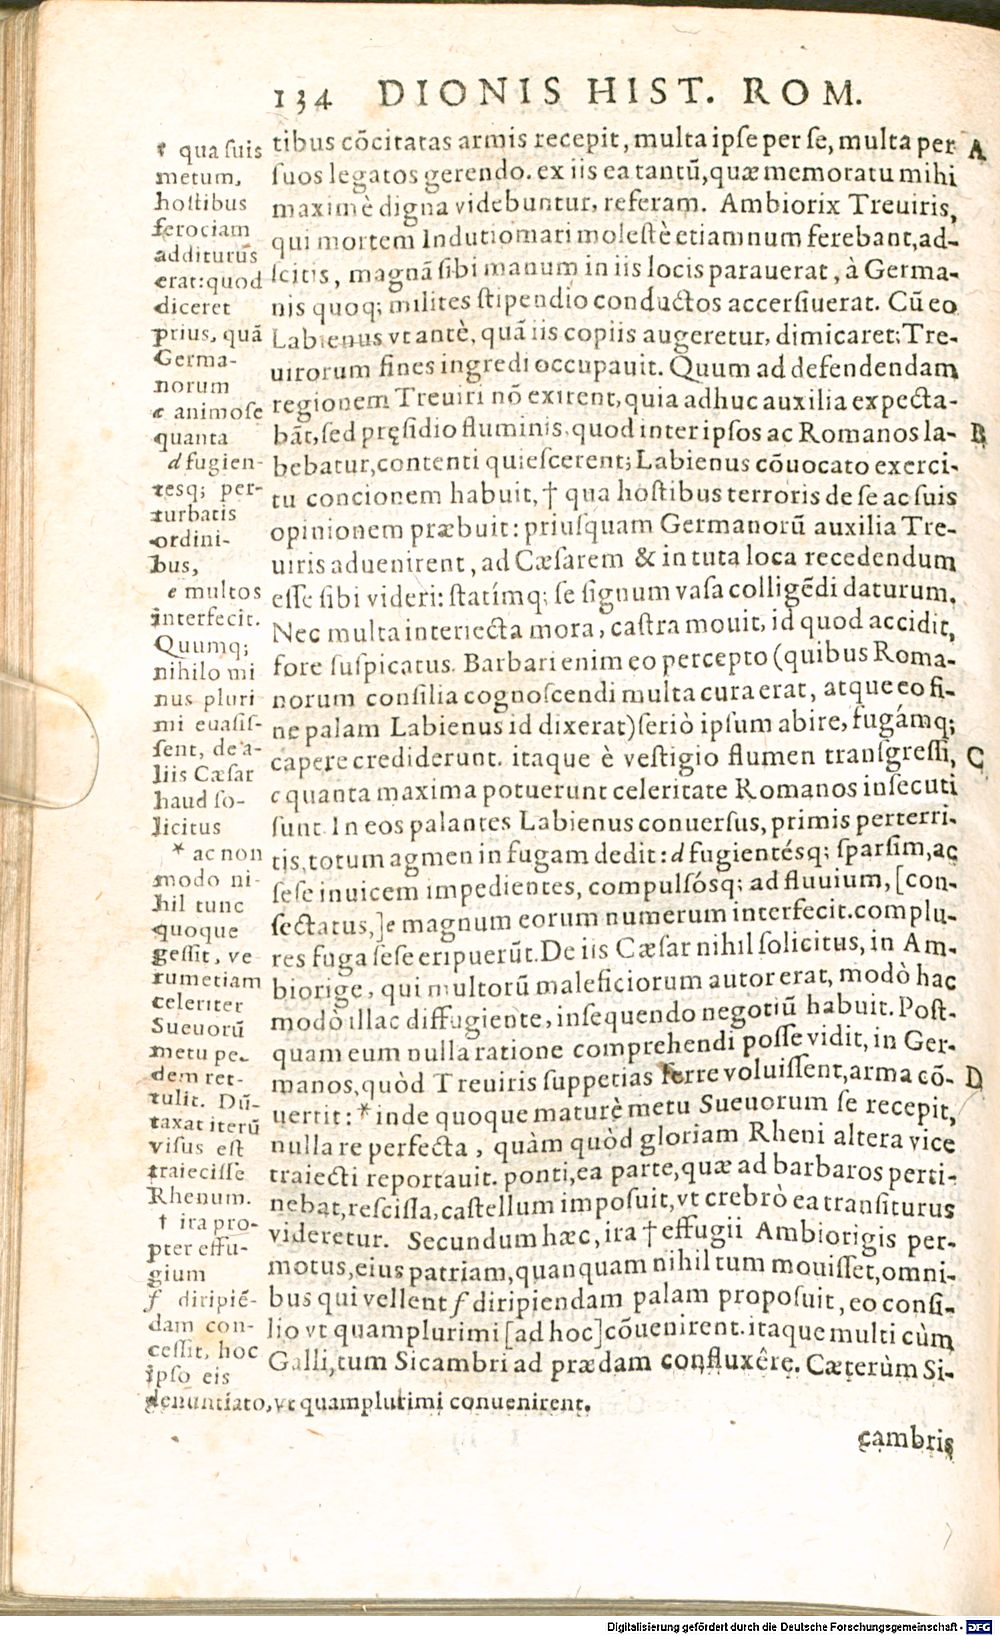 134 DIONIS HIST. ROM.
tibus cōcitatas armis recepit, multa ipſe per ſe, multa per
ſuos legatos gerendo. ex iis ea tantū, quæ memoratu mihi
maximè digna videbuntur, referam. Ambiorix Treuiris,
qui mortem Indutiomari moleſtè etiamnum ferebant, ad-
ſcitis, magnā ſibi manum in iis locis parauerat, à Germa-
nis quoq; milites ſtipendio conductos accerſiuerat. Cū eo
Labienus vt antè, quā iis copiis augeretur, dimicaret; Tre-
uirorum fines ingredi occupauit. Quum ad defendendam
regionem Treuiri nō exirent, quia adhuc auxilia expecta-
bāt, ſed pręſidio fluminis, quod inter ipſos ac Romanos la-
bebatur, contenti quieſcerent; Labienus cōuocato exerci-
tu concionem habuit, † qua hoſtibus terroris de ſe ac ſuis
opinionem præbuit: priuſquam Germanorū auxilia Tre-
uiris aduenirent, ad Cæſarem & in tuta loca recedendum
eſſe ſibi videri: ſtatímq; ſe ſignum vaſa colligēdi daturum.
Nec multa interiecta mora, caſtra mouit, id quod accidit,
fore ſuſpicatus. Barbari enim eo percepto (quibus Roma-
norum conſilia cognoſcendi multa cura erat, atque eo fi-
ne palam Labienus id dixerat) ſeriò ipſum abire, fugámq;
capere crediderunt. itaque è veſtigio flumen tranſgreſſi,
c quanta maxima potuerunt celeritate Romanos inſecuti
ſunt. In eos palantes Labienus conuerſus, primis perterri-
tis, totum agmen in fugam dedit: d fugientésq; ſparſim, ac
ſeſe inuicem impedientes, compulſósq; ad fluuium, [con-
ſectatus,] e magnum eorum numerum interfecit. complu-
res fuga ſeſe eripuerūt. De iis Cæſar nihil ſolicitus, in Am-
biorige, qui multorū maleficiorum autor erat, modò hac
modò illac diffugiente, inſequendo negotiū habuit. Poſt-
quam eum nulla ratione comprehendi poſſe vidit, in Ger-
manos, quòd Treuiris ſuppetias ferre voluiſſent, arma cō-
uertit: * inde quoque maturè metu Sueuorum ſe recepit,
nulla re perfecta, quàm quòd gloriam Rheni altera vice
traiecti reportauit. ponti, ea parte, quæ ad barbaros perti-
nebat, reſciſſa, caſtellum impoſuit, vt crebrò ea tranſiturus
videretur. Secundum hæc, ira † effugii Ambiorigis per-
motus, eius patriam, quanquam nihil tum mouiſſet, omni-
bus qui vellent f diripiendam palam propoſuit, eo conſi-
lio vt quamplurimi [ad hoc] cōuenirent. itaque multi cùm
Galli, tum Sicambri ad prædam confluxêre. Cæterùm Si-
cambris
A
B
C
D
† qua ſuis
metum,
hoſtibus
ferociam
additurūs
erat: quod
diceret
prius, quā
Germa-
norum
c animoſe
quanta
d fugien-
teſq; per-
turbatis
ordini-
bus,
e multos
interfecit.
Quumq;
nihilo mi
nus pluri
mi euaſiſ-
ſent, de a-
liis Cæſar
haud ſo-
licitus
* ac non
modo ni-
hil tunc
quoque
geſſit, ve
rumetiam
celeriter
Sueuorū
metu pe-
dem ret-
tulit. Dū-
taxat iterū
viſus eſt
traieciſſe
Rhenum.
† ira pro-
pter effu-
gium
f diripiē-
dam con-
ceſſit, hoc
ipſo eis
denuntiato, vt quamplurimi conuenirent.
Digitalisierung gefördert durch die Deutsche Forschungsgemeinschaft - DFG